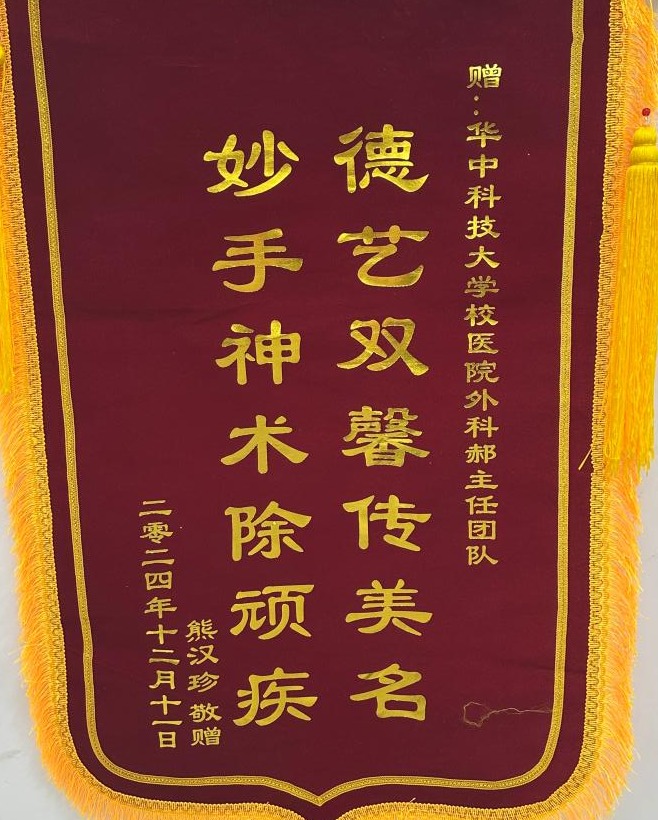 赠：华中科技大学校医院外科郝主任团队
德艺双馨传美名
妙手神术除顽疾
熊汉珍敬赠
二零二四年十二月十一日